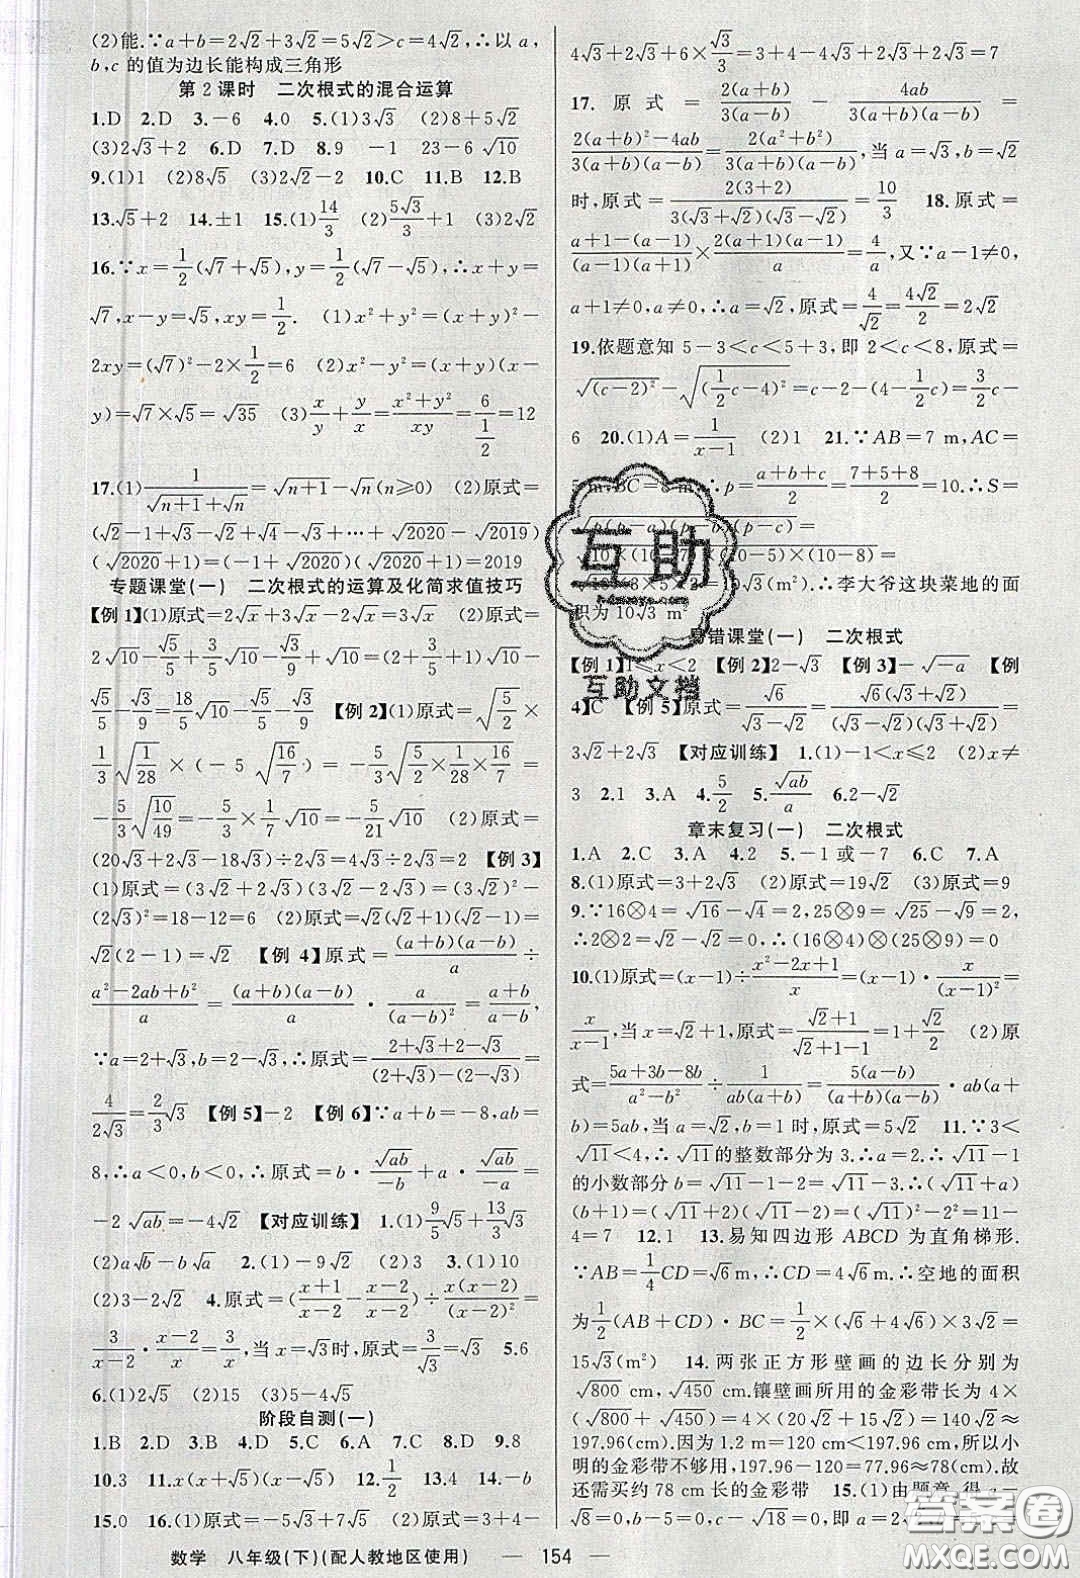 (2)能.∵a+b=2√2+3√2=5√2>c=4√2,∴以a,
b,c的值为边长能构成三角形
第2课时 二次根式的混合运算
1.D 2.D 3.-6 4.0 5.(1)3√3 (2)8+5√2
(3)2√3+2 6.D 7.D 8.9 -1 23-6√10
9.(1)1 (2)8√5 (3)2√2-2 10.C 11.B 12.B
13.√5+2 14.±1 15.(1)14/3 (2)5√3/3+1 (3)2√2
16.∵x=1/2(√7+√5),y=1/2(√7-√5),∴x+y=
√7,x-y=√5,xy=1/2. (1)x²+y²=(x+y)²-
2xy=(√7)²-2×1/2=6 (2)x²-y²=(x+y)(x-
y)=√7×√5=√35 (3)x/y+y/x=(x²+y²)/xy=6/(1/2)=12
17.(1)1/(√(n+1)+√n)=√(n+1)-√n(n≥0) (2)原式=
(√2-1+√3-√2+√4-√3+…+√2020-√2019)
(√2020+1)=(-1+√2020)(√2020+1)=2019
专题课堂(一) 二次根式的运算及化简求值技巧
【例1】(1)原式=2√x+3√x-2√x=3√x (2)原式=
2√10-√5/5+√3/3+√10/5-4√3/9=11/5√10-
√5/5-√3/9 【例2】(1)原式=√(5/2)×
1/3√(1/28)×(-5√(16/7))=-5/3√(5/2×1/28×16/7)=
-5/3√(10/49)=-5/3×1/7√10=-5/21√10 (2)原式=
(20√3+2√3-18√3)÷2√3=4√3÷2√3=2 【例3】
(1)原式=(3√2+2√3)(3√2-2√3)=(3√2)²-
(2√3)²=18-12=6 (2)原式=√2(√2+1)(√2-1)=
√2(2-1)=√2 【例4】原式=(a+b)(a-b)/a÷
(a²-2ab+b²)/a=(a+b)(a-b)/a·a/(a-b)²=(a+b)/(a-b),
∵a=2+√3,b=2-√3,∴原式=(2+√3+2-√3)/((2+√3)-(2-√3))=
4/(2√3)=2/3√3 【例5】-2 【例6】∵a+b=-8,ab=
8,∴a<0,b<0,∴原式=b·√ab/(-b)+a·√ab/(-a)=
-2√ab=-4√2 【对应训练】1.(1)9/5√5+13/3√3
(2)a√b-b√a 2.(1)-9√2 (2)3 3.(1)10
(2)3-2√2 4.原式=((x+1)/(x-2)-(x-2)/(x-2))÷x(x-2)/(x-2)²=
3/(x-2)·(x-2)/x=3/x,当x=√3时,原式=3/√3=√3 5.6
6.(1)2√5 (2)15 (3)5-4√5
阶段自测(一)
1.B 2.D 3.B 4.D 5.C 6.A 7.C 8.D 9.8
10.3 11.x(x+√5)(x-√5) 12.1/2 13.4 14.-b
15.0 16.(1)原式=-5√3+7√5 (2)原式=3+4-
4√3+2√3+6×√3/3=3+4-4√3+2√3+2√3=7
17.原式=2(a+b)/3(a-b)-4ab/3(a+b)(a-b)=
(2(a+b)²-4ab)/3(a+b)(a-b)=2(a²+b²)/3(a+b)(a-b),当a=√3,b=√2
时,原式=2(3+2)/3(√3+√2)(√3-√2)=10/3 18.原式=
(a+1-(a-1))/(a-1)(a+1)×2(a+1)(a-1)/a=4/a,又∵a-1≠0,
a+1≠0,a≠0,∴a=√2,原式=4/√2=4√2/2=2√2
19.依题意知5-3<c<5+3,即2<c<8,原式=
√(c-2)²-√(1/2c-4)²=c-2-(4-1/2c)=3/2c-
6 20.(1)A=1/(x-1) (2)1 21.∵AB=7 m,AC=
5 m,BC=8 m,∴p=(a+b+c)/2=(7+5+8)/2=10.∴S=
√(p(p-a)(p-b)(p-c))=
√(10×(10-7)×(10-5)×(10-8))=
√(10×3×5×2)=10√3(m²).∴李大爷这块菜地的面
积为10√3 m²
易错课堂(一) 二次根式
【例1】1≤x<2 【例2】2-√3 【例3】-√-a 【例
4】C 【例5】原式=√6/(√3-√2)=√6(√3+√2)/(√3-√2)(√3+√2)=
3√2+2√3 【对应训练】1.(1)-1<x≤2 (2)x≠
3 2.1 3.A 4.5/2 5.√ab/a 6.2-√2
章末复习(一) 二次根式
1.A 2.C 3.A 4.2 5.-1或-7 6.C 7.A
8.(1)原式=3+2√2 (2)原式=19√2 (3)原式=9
9.∵16⊗4=√16-√4=2,25⊗9=√25-√9=2,
∴2⊗2=√2-√2=0,∴(16⊗4)⊗(25⊗9)=0
10.(1)原式=(x-1)÷(x²-2x+1)/x=(x-1)·x/(x-1)²=
x/(x-1),当x=√2+1,原式=(√2+1)/(√2+1-1)=1+√2/2 (2)原
式=(5a+3b-8b)/(a²-b²)÷1/ab(a+b)=5(a-b)/(a+b)(a-b)·ab(a+
b)=5ab,当a=√2,b=1时,原式=5√2 11.∵3<
√11<4,∴√11的整数部分为3.∴a=2.∴√11-1
的小数部分b=√11-1-2=√11-3.∴(√11+a)
(b+1)=(√11+2)(√11-2)=(√11)²-2²=11-
4=7 12.1 13.易知四边形ABCD为直角梯形.
∵AB=1/4CD=√6m,∴CD=4√6m.∴空地的面积
为1/2(AB+CD)·BC=1/2×(√6+4√6)×2√2=
15√3(m²) 14.两张正方形壁画的边长分别为
√800 cm,√450 cm.镶壁画所用的金彩带长为4×
(√800+√450)=4×(20√2+15√2)=140√2≈
197.96(cm).因为1.2 m=120 cm<197.96 cm,所以小
明的金彩带不够用,197.96-120=77.96≈78(cm).故
还需买约78 cm长的金彩带 15.(1)由题意,得a-
数学 八年级(下)(配人教地区使用) — 154 —
互助
互助文档
答案圈